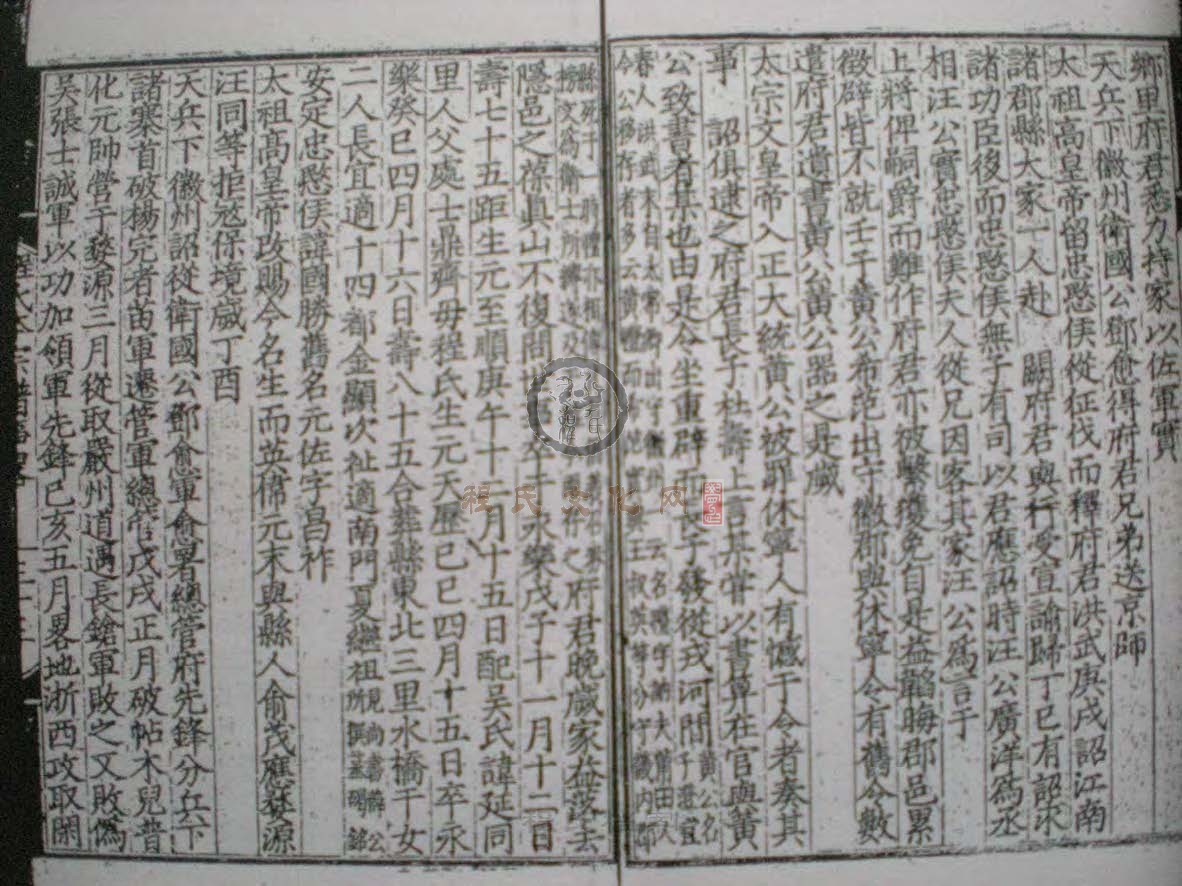 鄉里府君悉力持家以佐軍實
天兵下徽州衛國公鄧愈得府君兄弟送京師
太祖高皇帝留忠愍侯從征伐而釋府君洪武庚戌詔江南
諸郡縣大家一人赴 闕府君與行受宣諭歸丁巳有詔求
諸功臣後而忠愍侯無子有司以君應詔時汪公廣洋為丞
相汪公實忠愍侯夫人從兄因客其家汪公為言于
上將俾嗣爵而難作府君亦被繫獲免自是益韜晦郡邑累
徵辟皆不就壬午黃公希范出守徽郡與休寧令有舊令數
遣府君遺書黃公黃公器之是歲
太宗文皇帝入正大統黃公被罪休寧人有憾于令者奏其
事 詔俱逮之府君長子杜壽上言某嘗以書算在官與黃
公致書者某也由是令坐重辟而長子發從戎河間
隱邑之葆真山不復問世 永樂戊子十一月十二日
壽七十五距生元至順庚午十二月十五日配吳氏諱延同
里人父處士鼎齊母程氏生元天曆己巳四月十五日卒永
樂癸巳四月十六日壽八十五合葬縣東北三里水橋干女
二人長宜適十四都金顯次祉適南門夏繼祖
安定忠愍侯諱國勝舊名元佐字昌祚
太祖高皇帝改賜今名生而英偉元末與縣人俞茂應婺源
汪同等拒寇保境歲丁酉
天兵下徽州詔從衛國公鄧愈軍愈署總管府先鋒分兵下
諸寨首破楊完者苗軍遷管軍總管戊戌正月破帖木兒普
化元帥營于婺源三月從取嚴州道遇長鎗軍敗之又敗偽
吳張士誠軍以功加領軍先鋒己亥五月畧地浙西攻取閑
程氏文化网